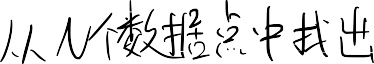 从N个数据点中找出